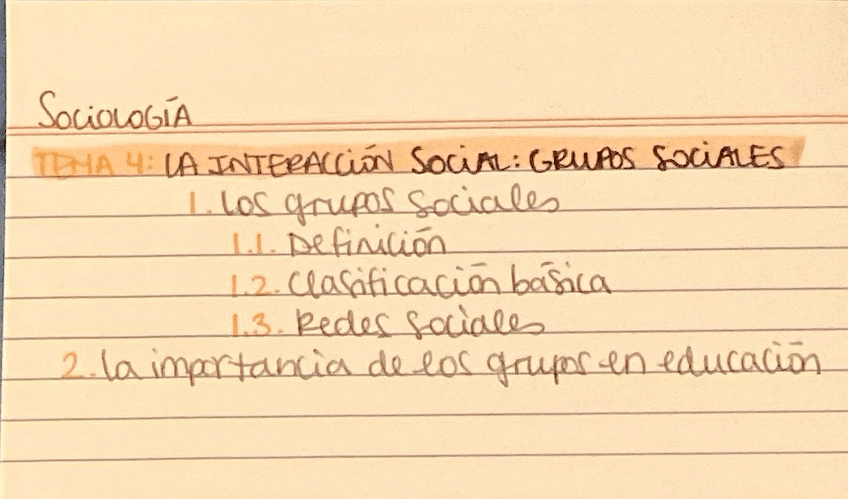 SOCIOLOGÍA
TEMA 4: LA INTERACCIÓN SOCIAL: GRUPOS SOCIALES
1. Los grupos sociales
1.1. Definición
1.2. Clasificación básica
1.3. Redes sociales
2. la importancia de los grupos en educación